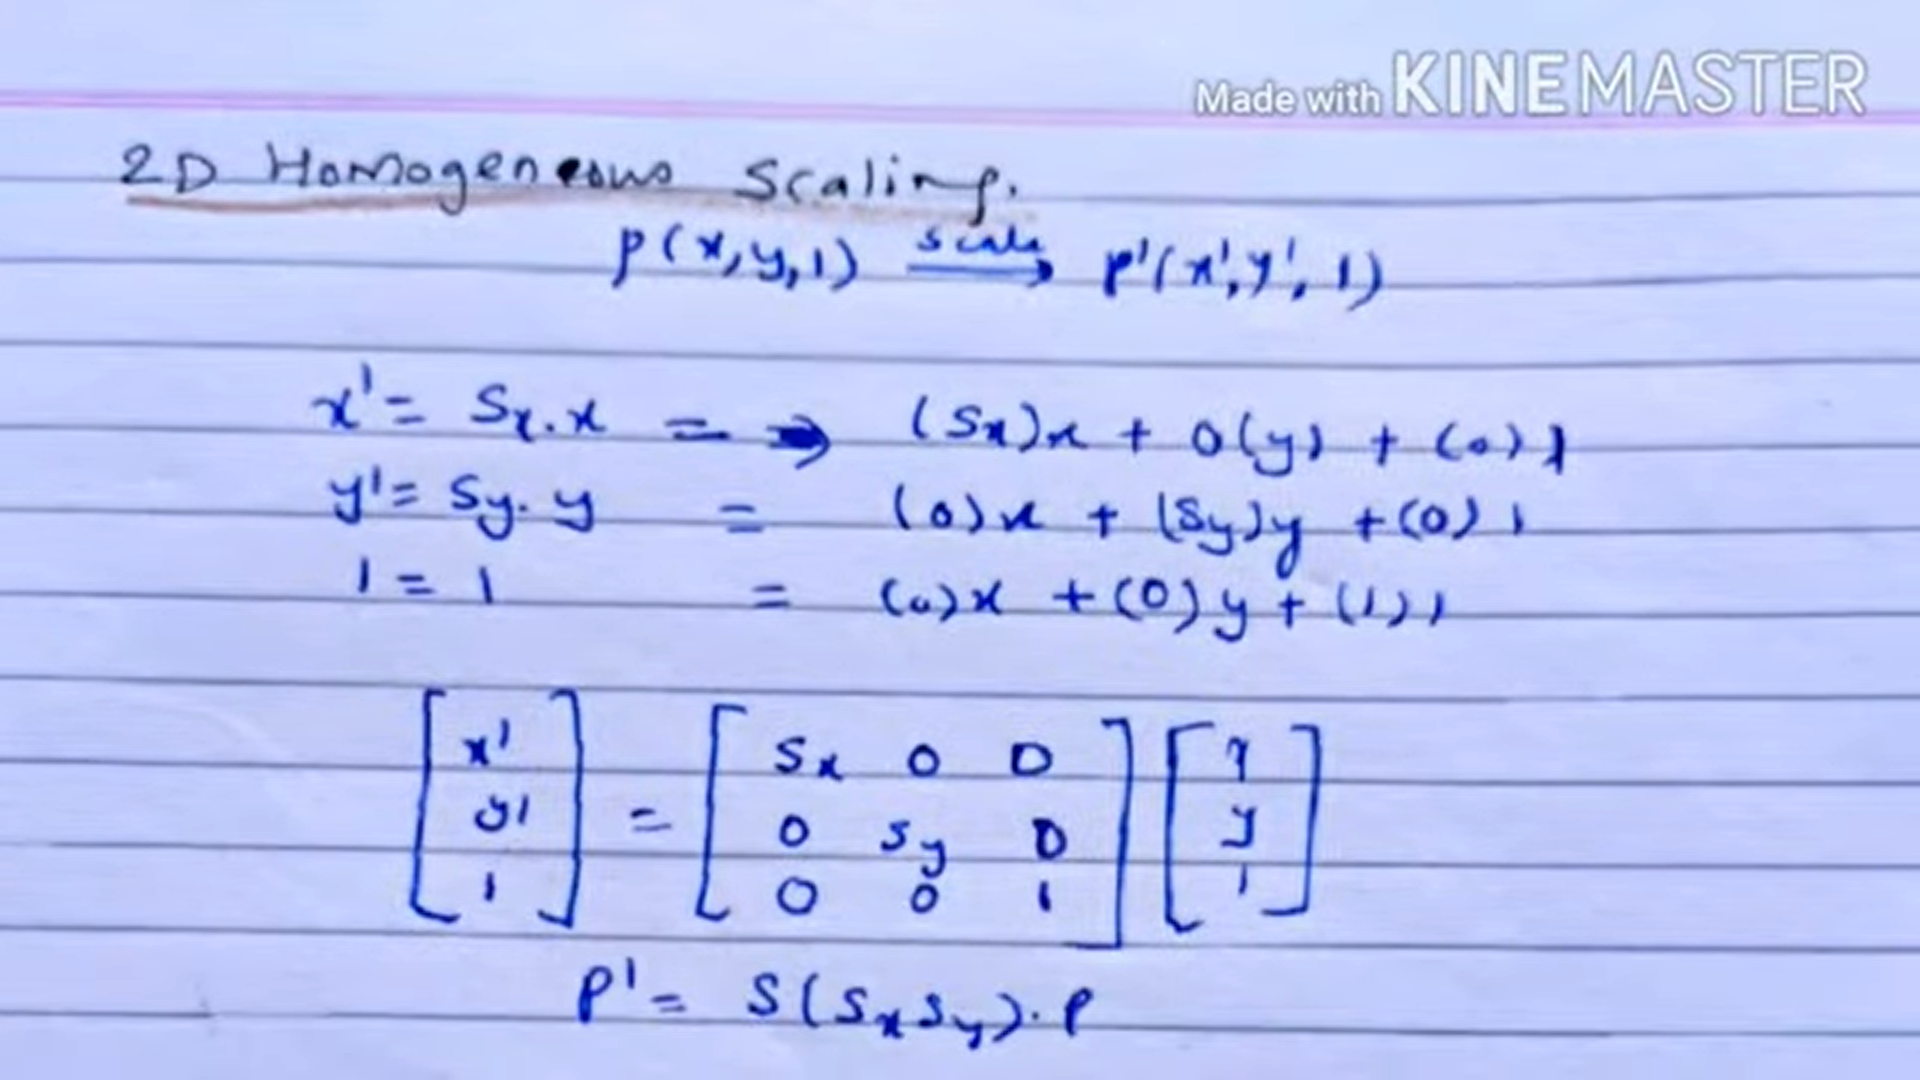 Made with KINEMASTER
2D Homogeneous Scaling.
P(x,y,1) scale → P'(x',y',1)
x' = Sx.x = → (Sx)x + 0(y) + (0)1
y' = Sy.y = (0)x + (Sy)y + (0)1
1 = 1 = (0)x + (0)y + (1)1
[x'] = [Sx 0 0] [x]
[y'] [0 Sy 0] [y]
[1] [0 0 1] [1]
P' = S(SxSy).P